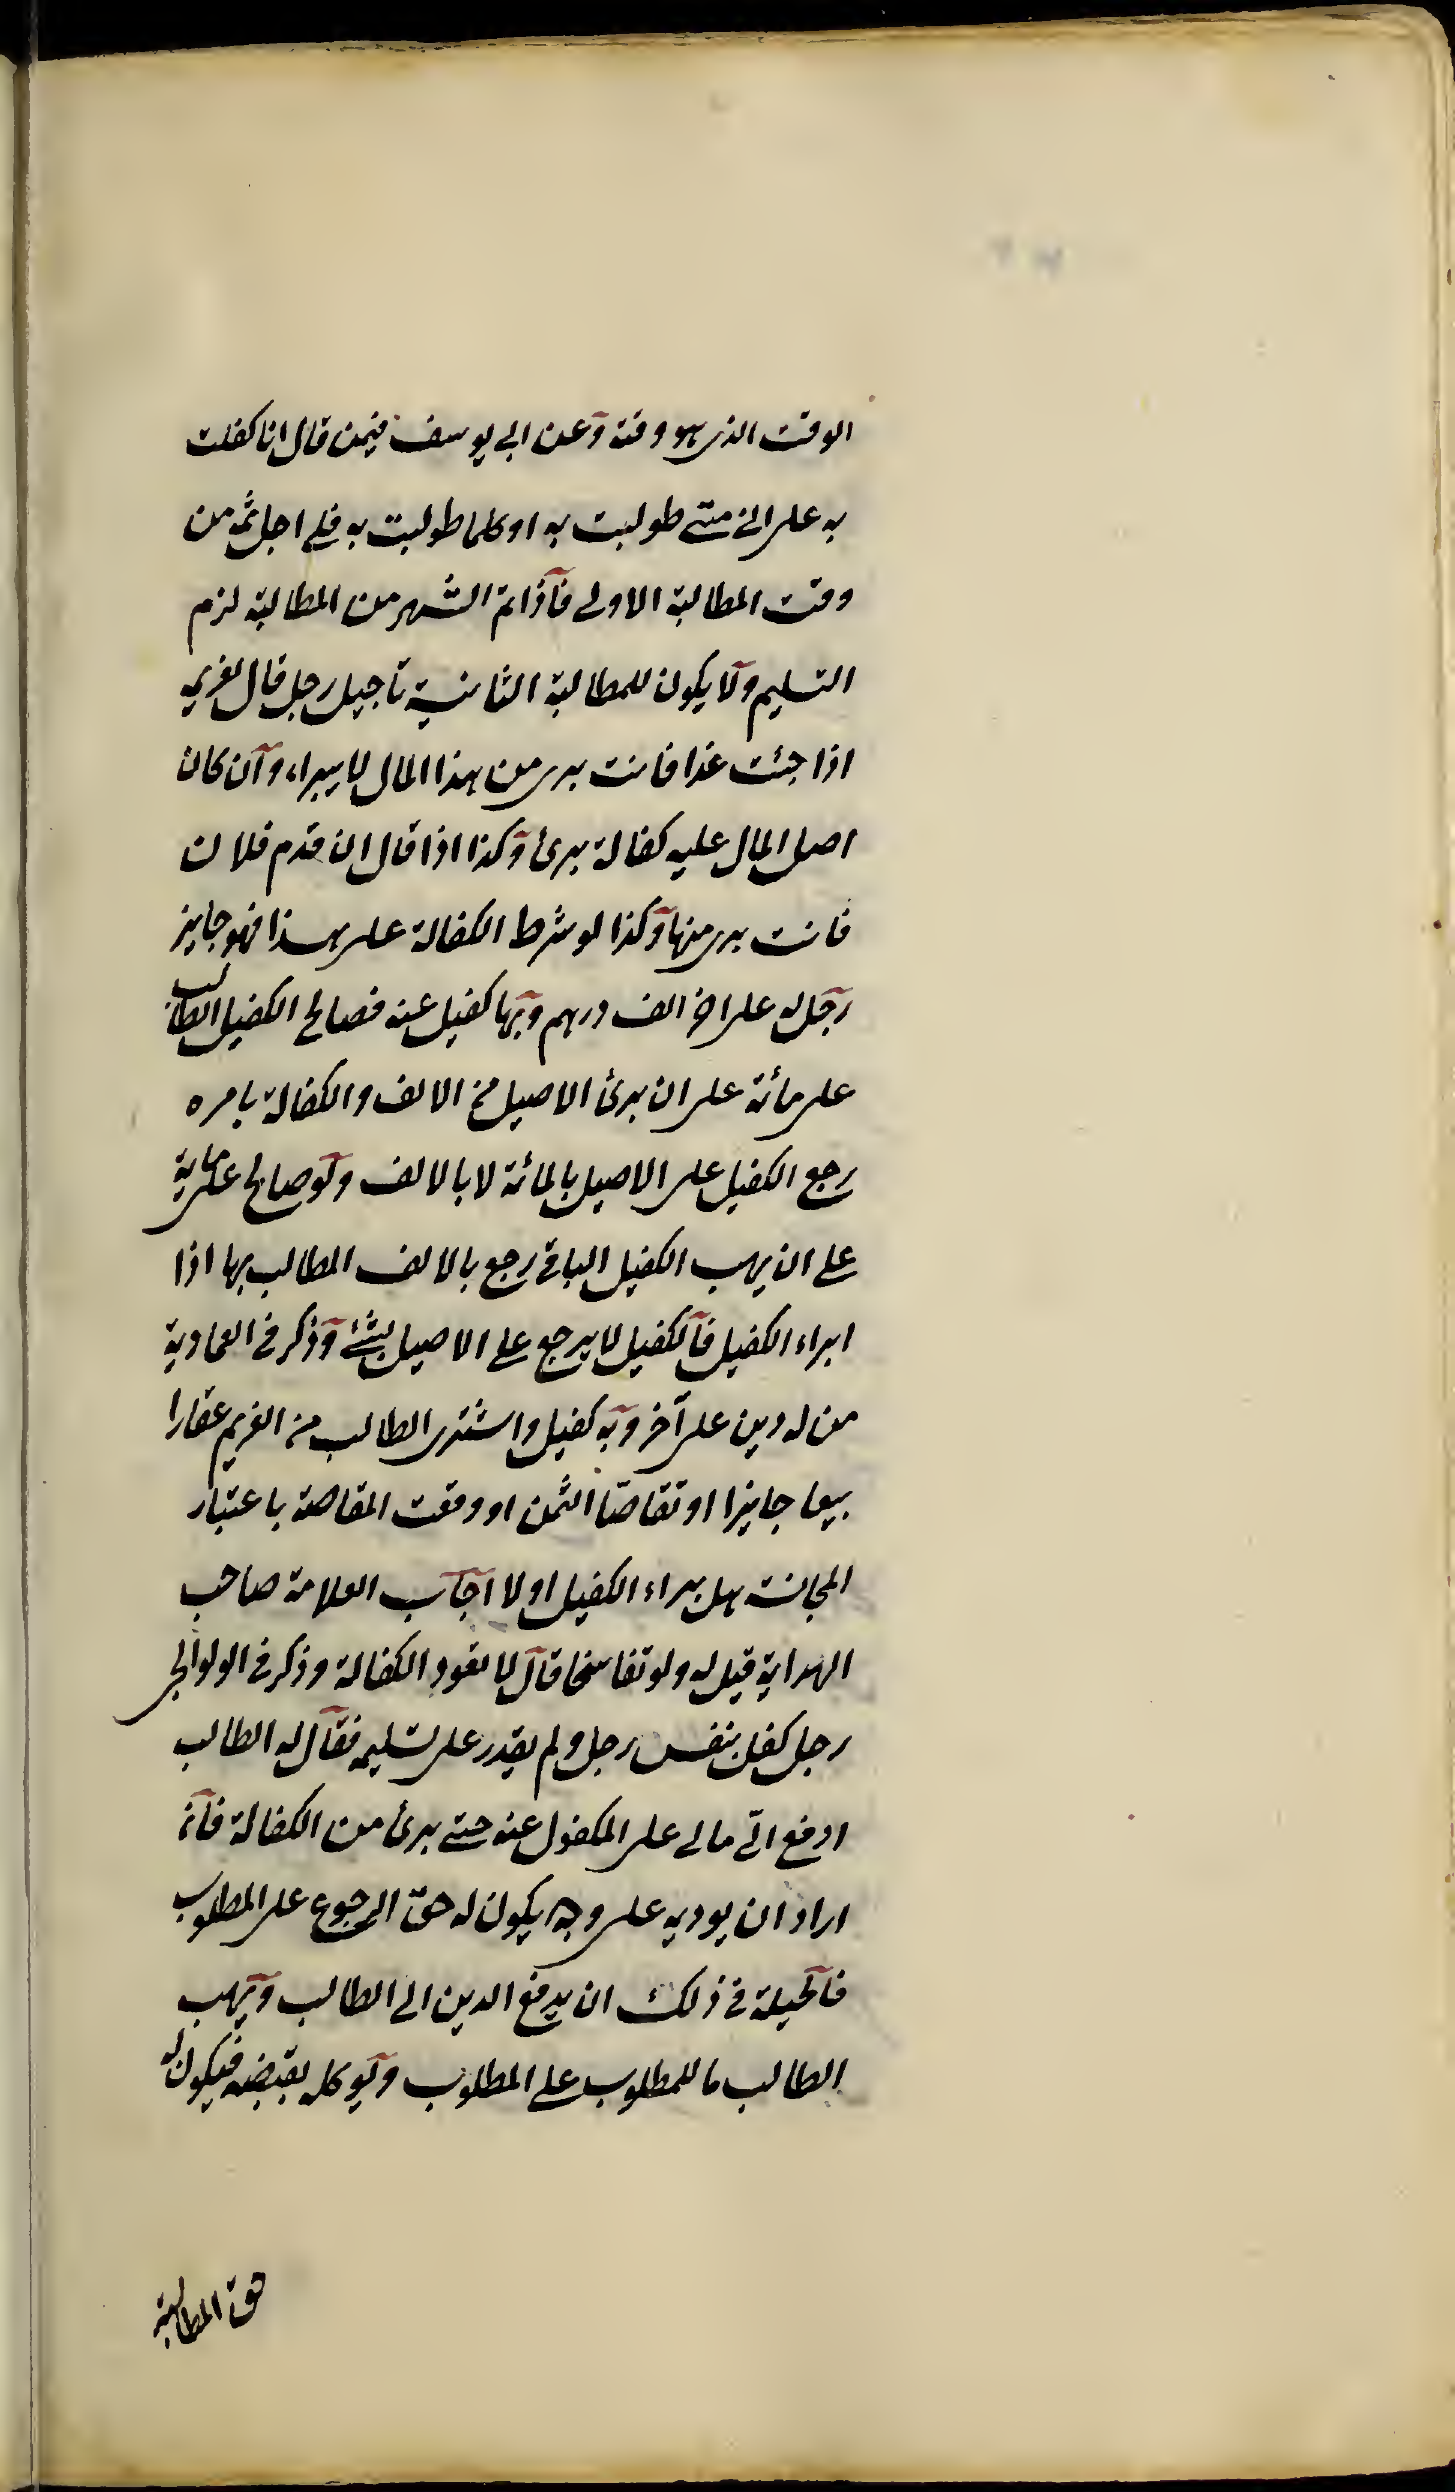 الوقت الذى هو وقته وعن ابى يوسف فيمن قال انا كفلت
به على انى متى طولبت به او كلما طولبت به فلى اجل ثمه من
وقت المطالبة الاولى فاذا تم الشهر من المطالبة لزم
التسليم ولا يكون للمطالبة الثانية تأجيل رجل قال لغريمه
اذا جئت غدا فانت برى من هذا المال لا يبراء وان كان
اصل المال عليه كفالة برئ وكذا اذا قال ان قدم فلان
فانت برى منها وكذا لو شرط الكفالة على هذا فهو جايز
رجل له على اخر الف درهم وبها كفيل عنه فصالح الكفيل الطالب
على مائة على ان برئ الاصيل من الالف والكفالة بامره
رجع الكفيل على الاصيل بالمائة لا بالالف ولو صالح على ماية
على ان يهب الكفيل الباقى رجع بالالف المطالب بها اذا
ابراء الكفيل فالكفيل لا يرجع على الاصيل بشئ وذكر فى العمادية
من له دين على آخر وبه كفيل واشترى الطالب من الغريم عقارا
بيعا جايزا او تقاصّا الثمن او وقعت المقاصة باعتبار
المجانسة هل يبراء الكفيل او لا اجاب العلامة صاحب
الهداية قيل له ولو تفاسخا قال لا تعود الكفالة وذكر فى الولوالجى
رجل كفل بنفس رجل ولم يقدر على تسليمه فقال له الطالب
ادفع الىّ مالى على المكفول عنه حتى برئ من الكفالة فانه
اراد ان يوديه على وجه يكون له حق الرجوع على المطلوب
فالحيلة فى ذلك ان يدفع الدين الى الطالب ويهب
الطالب ما للمطلوب على المطلوب ويوكله بقبضه فيكون له
حق المطالبة